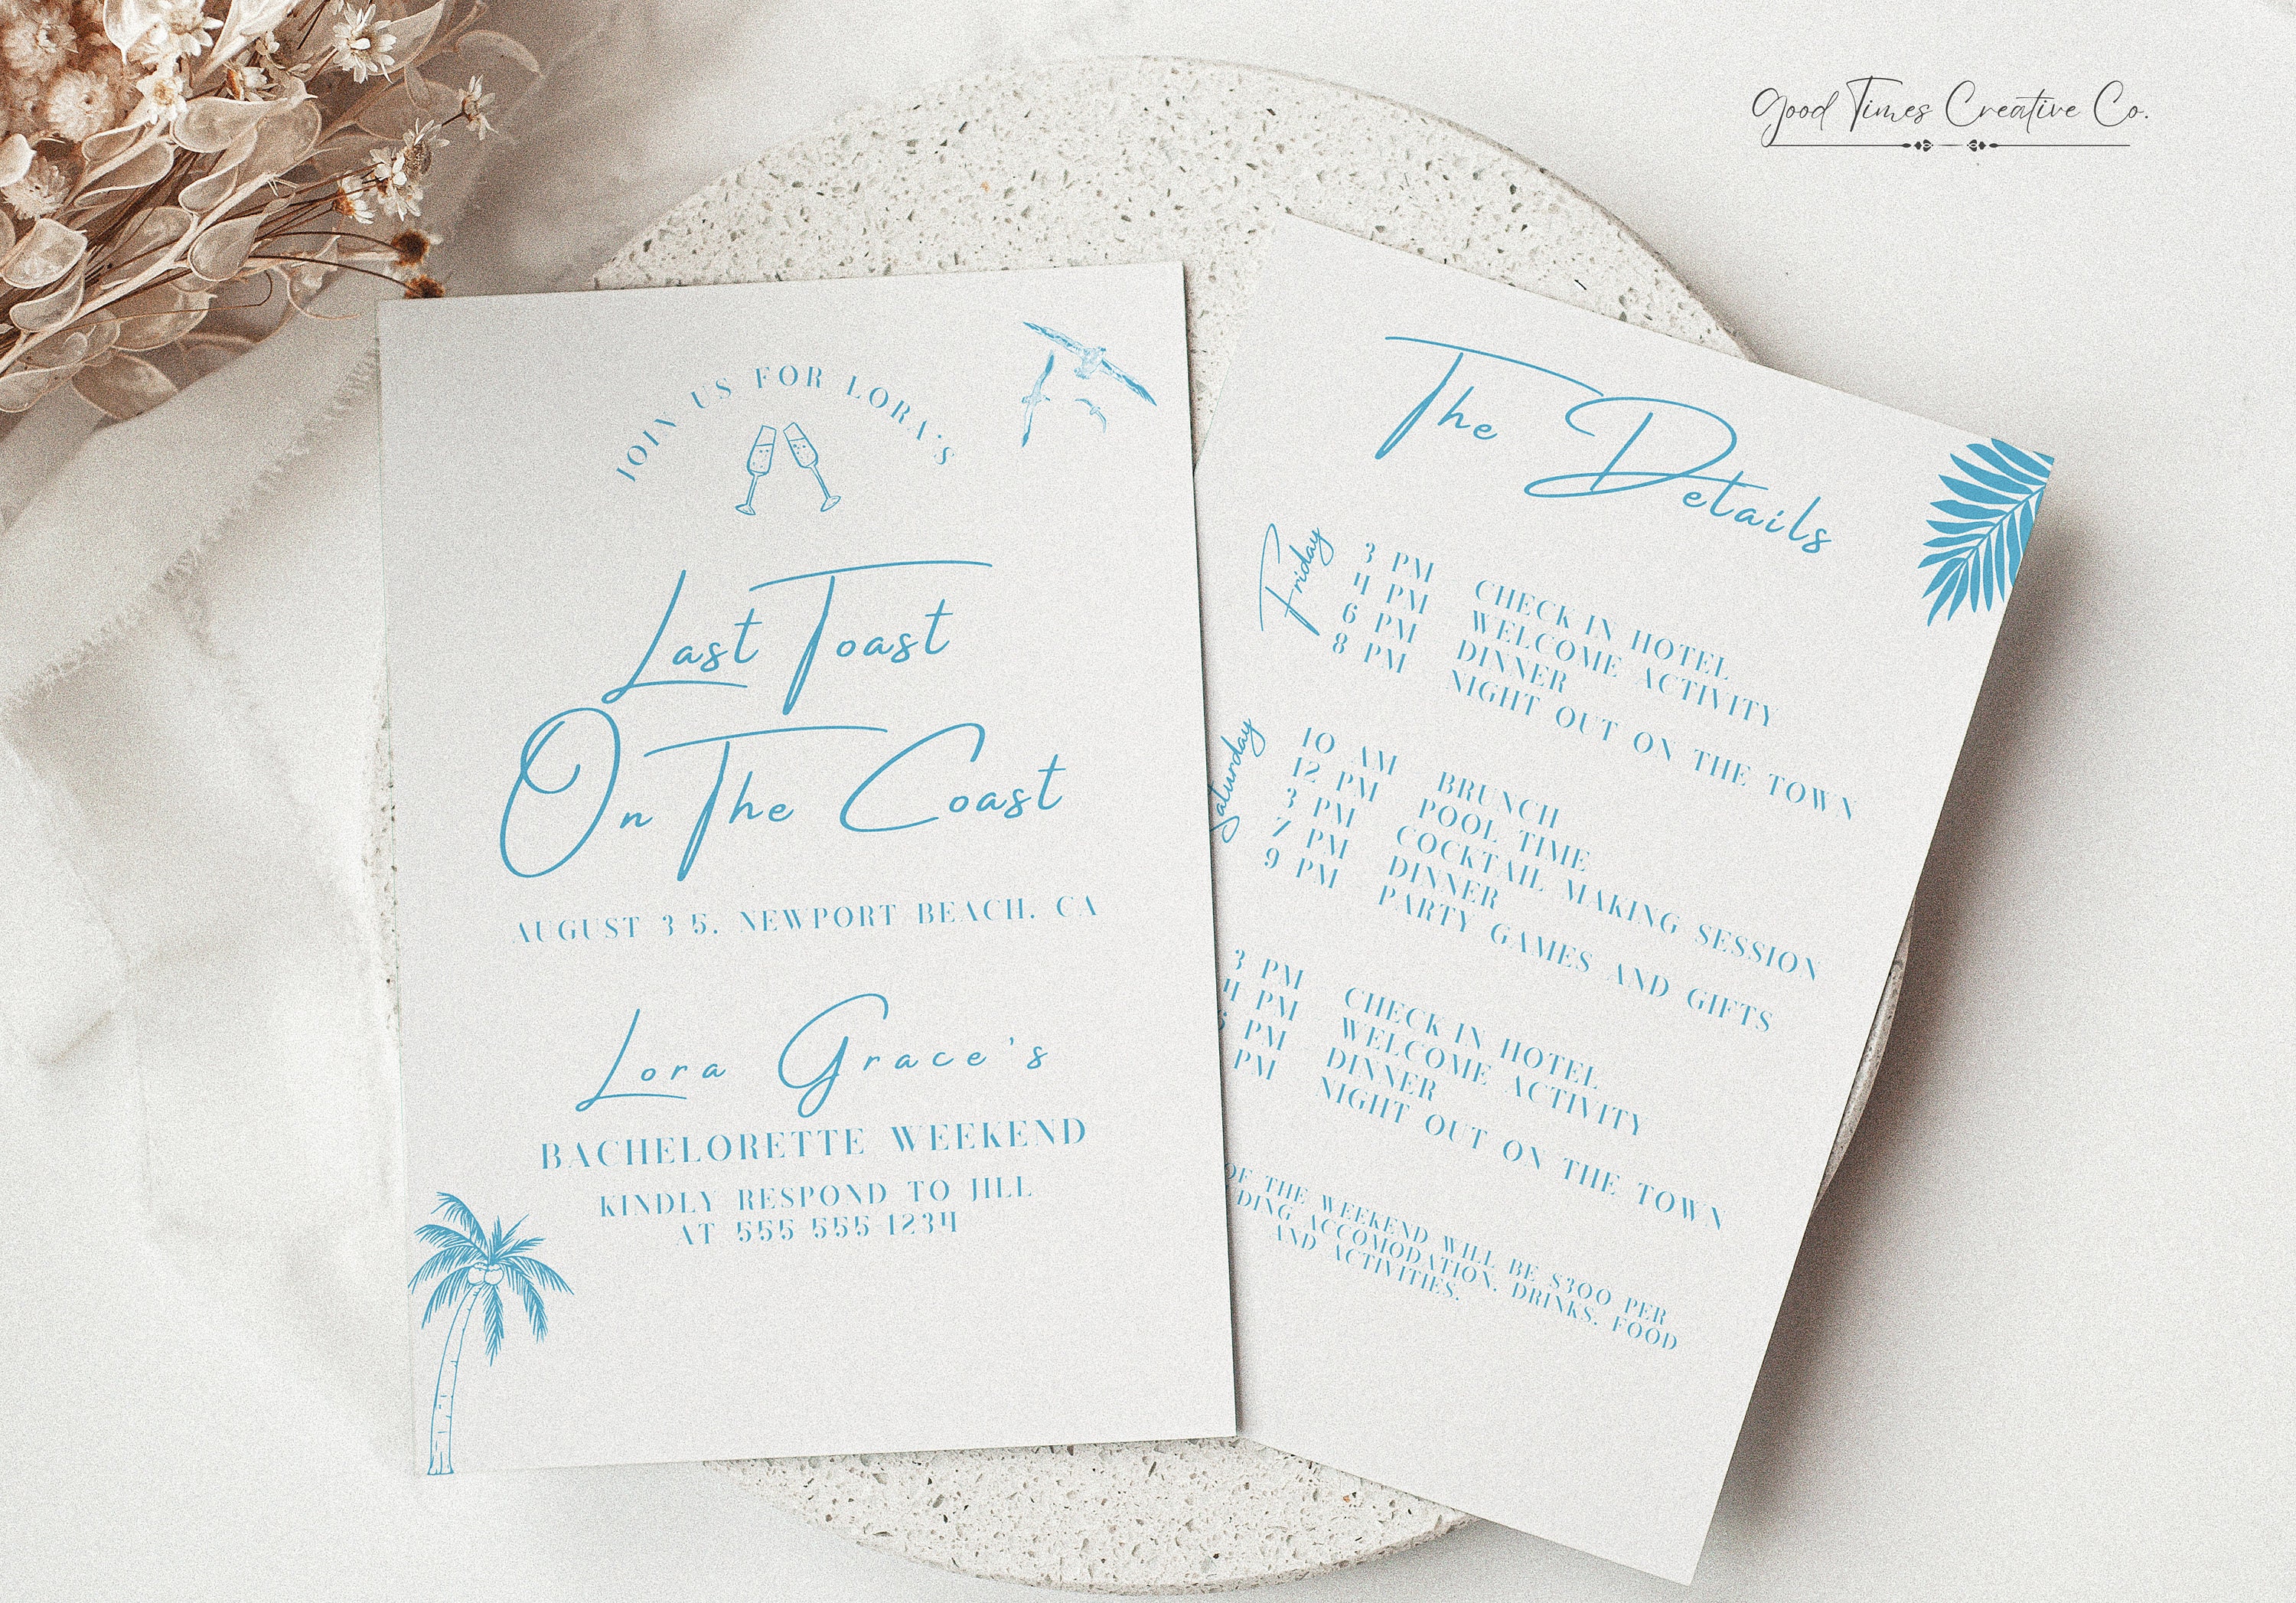 Good Times Creative Co.
JOIN US FOR LORA'S
Last Toast
On The Coast
AUGUST 3 5, NEWPORT BEACH, CA
Lora Grace's
BACHELORETTE WEEKEND
KINDLY RESPOND TO JILL
AT 555 555 1234
The Details
Friday
3 PM CHECK IN HOTEL
4 PM WELCOME ACTIVITY
6 PM DINNER
8 PM NIGHT OUT ON THE TOWN
Saturday
10 AM BRUNCH
12 PM POOL TIME
3 PM COCKTAIL MAKING SESSION
7 PM DINNER
9 PM PARTY GAMES AND GIFTS
3 PM CHECK IN HOTEL
4 PM WELCOME ACTIVITY
PM DINNER
PM NIGHT OUT ON THE TOWN
OF THE WEEKEND WILL BE $300 PER
DING ACCOMODATION, DRINKS, FOOD
AND ACTIVITIES.